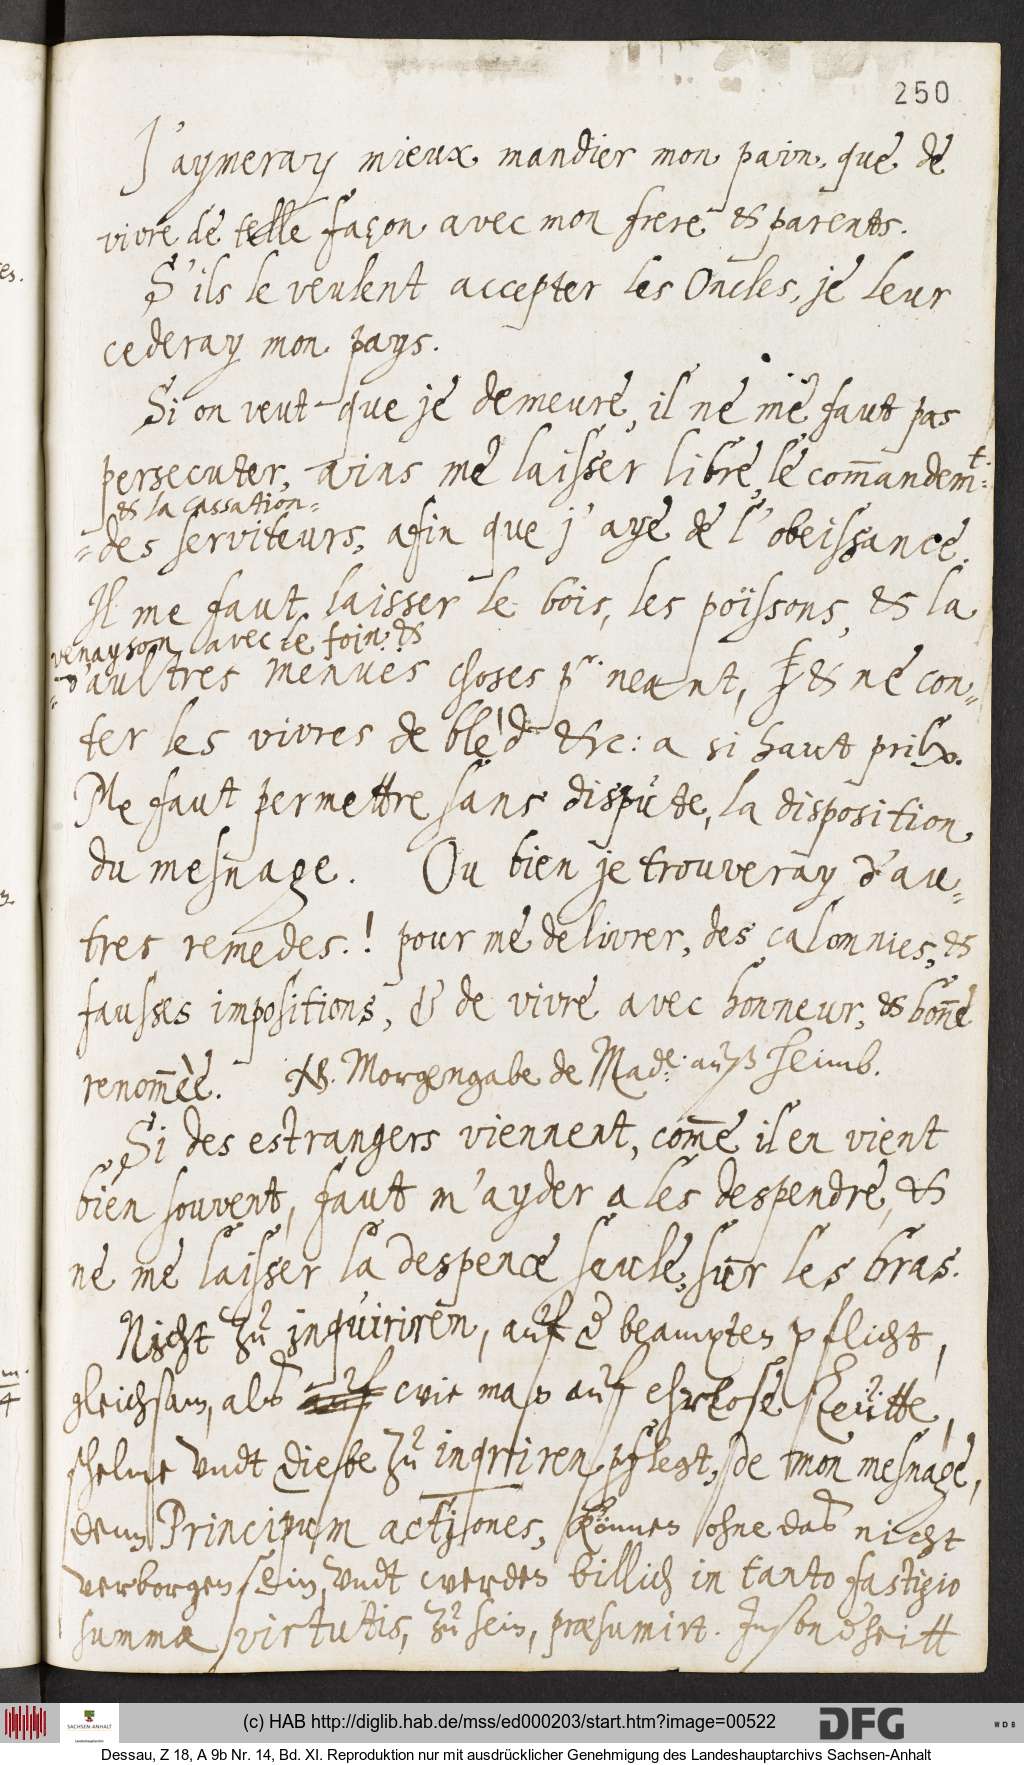 250
J'aymeray mieux mandier mon pain, que de
vivre de telle façon avec mon frere & parents.
S'ils le veulent accepter les Oncles, je leur
cederay mon pays.
Si on veut que je demeure, il ne me faut pas
persecuter, ains me laisser libre, le com̅andem:t
& la cassation
=des serviteurs, afin que j'aye de l'obeissance.
Il me faut laisser le bois, les poissons, & la
venayson avec le foin &
d'aultres menues choses pr. neant, & ne con=
ter les vivres de bled &c: a si haut prix.
Me faut permettre sans dispute, la disposition
du mesnage. Ou bien je trouveray d'au=
tres remedes.! pour me delivrer, des calomnies, &
fausses impositions, & de vivre avec honneur, & bon̅e
renom̅èè. NB. Morgengabe de Made: auß heimb.
Si des estrangers viennent, com̅e il en vient
bien souvent, faut m'ayder a les despendre, &
ne me laisser la despence seule, sur les bras.
Nicht zu inquiriren, auf der beampten pflicht,
gleichsam, als auf wie man auf ehrlose Leütte,
schelme undt Diebe zu inqriren pflegt, de mon mesnage,
denn Principum actiones, können ohne das nicht
verborgen sein, undt werden billich in tanto fastigio
summæ virtutis, zu sein, præsumirt. Insonderheitt
es.
(c) HAB http://diglib.hab.de/mss/ed000203/start.htm?image=00522
SACHSEN-ANHALT
DFG
WDB
Dessau, Z 18, A 9b Nr. 14, Bd. XI. Reproduktion nur mit ausdrücklicher Genehmigung des Landeshauptarchivs Sachsen-Anhalt